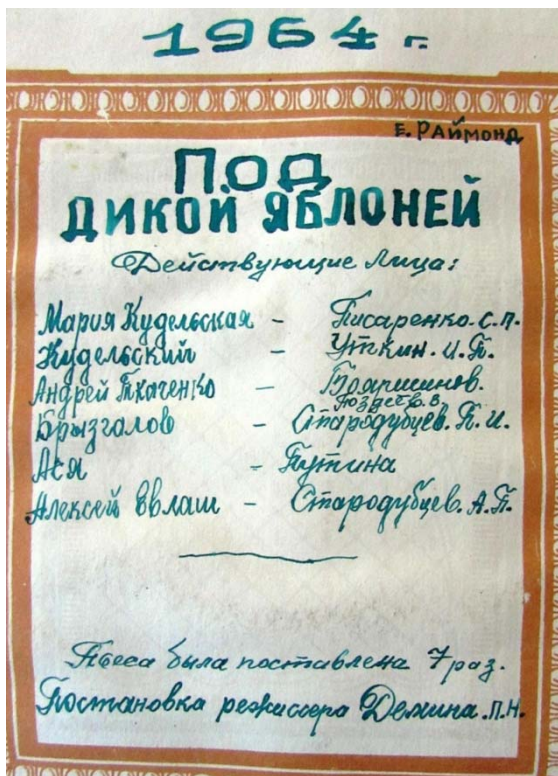 1964 г.
Е. Раймонд
ПОД
ДИКОЙ ЯБЛОНЕЙ
Действующие Лица:
Мария Кудельская - Писаренко. С. П.
Кудельский - Уткин. И. П.
Андрей Ткаченко - Бояршинов.
Поздеев. В.
Брызгалов - Стародубцев. П. И.
Ася - Путина
Алексей - Стародубцев. А. П.
Пьеса была поставлена 7 раз.
Постановка режиссера Демина. П. Н.